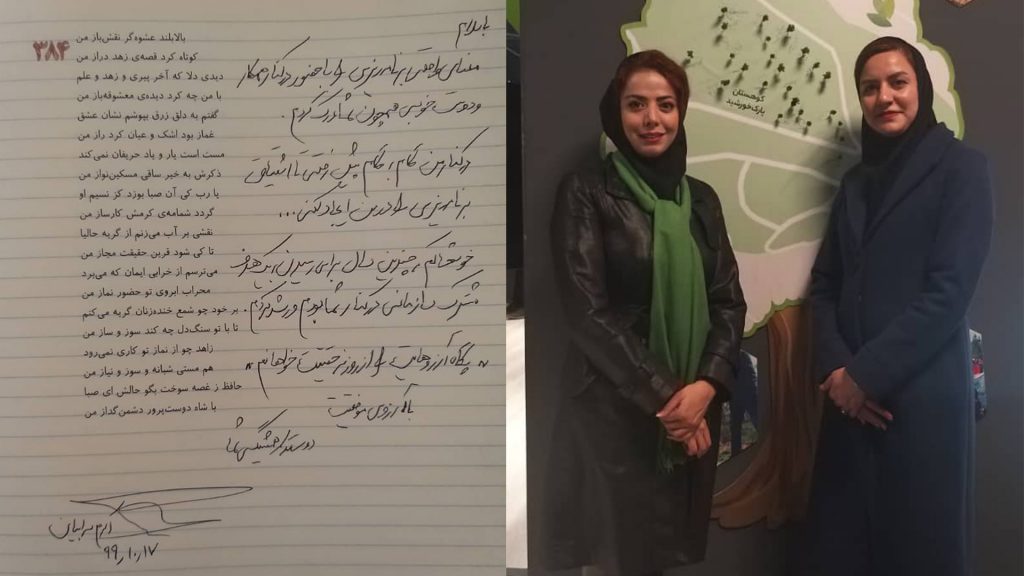 ۳۸۴
بالابلند عشوه‌گر نقش‌باز من
کوتاه کرد قصه‌ی زهد دراز من
دیدی دلا که آخر پیری و زهد و علم
با من چه کرد دیده‌ی معشوقه‌باز من
گفتم به دلق زرق بپوشم نشان عشق
غماز بود اشک و عیان کرد راز من
مست است یار و یاد حریفان نمی کند
ذکرش به خیر ساقی مسکین‌نواز من
یا رب کی آن صبا بوزد کز نسیم او
گردد شمامه‌ی کرمش کارساز من
نقشی بر آب می‌زنم از گریه حالیا
تا کی شود قرین حقیقت مجاز من
می‌ترسم از خرابی ایمان که می‌برد
محراب ابروی تو حضور نماز من
بر خود چو شمع خنده‌زنان گریه می‌کنم
تا با تو سنگ‌دل چه کند سوز و ساز من
زاهد چو از نماز تو کاری نمی‌رود
هم مستی شبانه و سوز و نیاز من
حافظ ز غصه سوخت بگو حالش ای صبا
با شاه دوست‌پرور دشمن‌گداز من
با سلام
معنای واقعی برنامه‌ریزی را با حضور در کنار همکار
و دوست خوبی همچون شما درک کردم.
در کنار من گام به گام پیش رفتی تا اشتیاق
برنامه‌ریزی را در من ایجاد کنی...
خوشحالم چندین سال برای رسیدن به یک هدف
مشترک سازمانی در کنار شما بودم و رشد کردم.
آرزوهایت را از روزنه حقیقت خواهانم
با آرزوی موفقیت
دوستدار همیشگی شما
۹۹,۱۰,۱۷
کوهستان
پارک خورشید